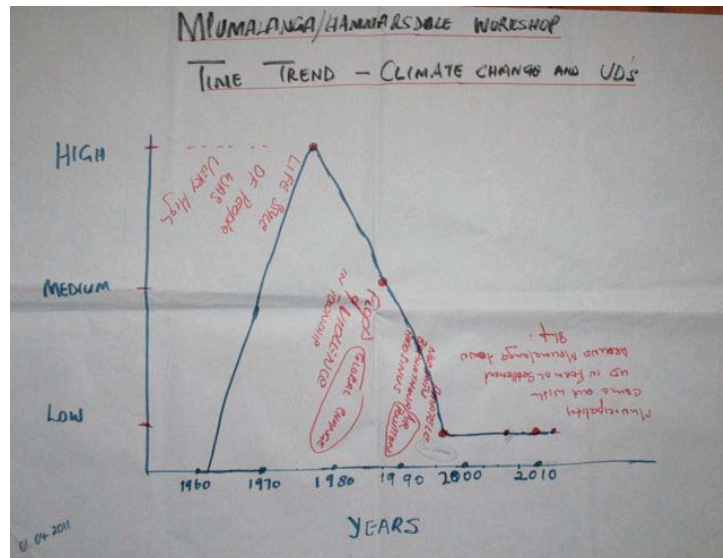 MPUMALANGA/HAMMARSDALE WORKSHOP
TIME TREND – CLIMATE CHANGE AND UD's
HIGH
MEDIUM
LOW
LIFE STYLE
OF People
WAS
VERY HIGH
OF VIOLENCE
IN TOWNSHIP
GLOBAL CHANGE
AIR
Municipality
came out with
UD in Formal Settlement
around Mpumalanga town
1960 1970 1980 1990 2000 2010
YEARS
01.04.2011